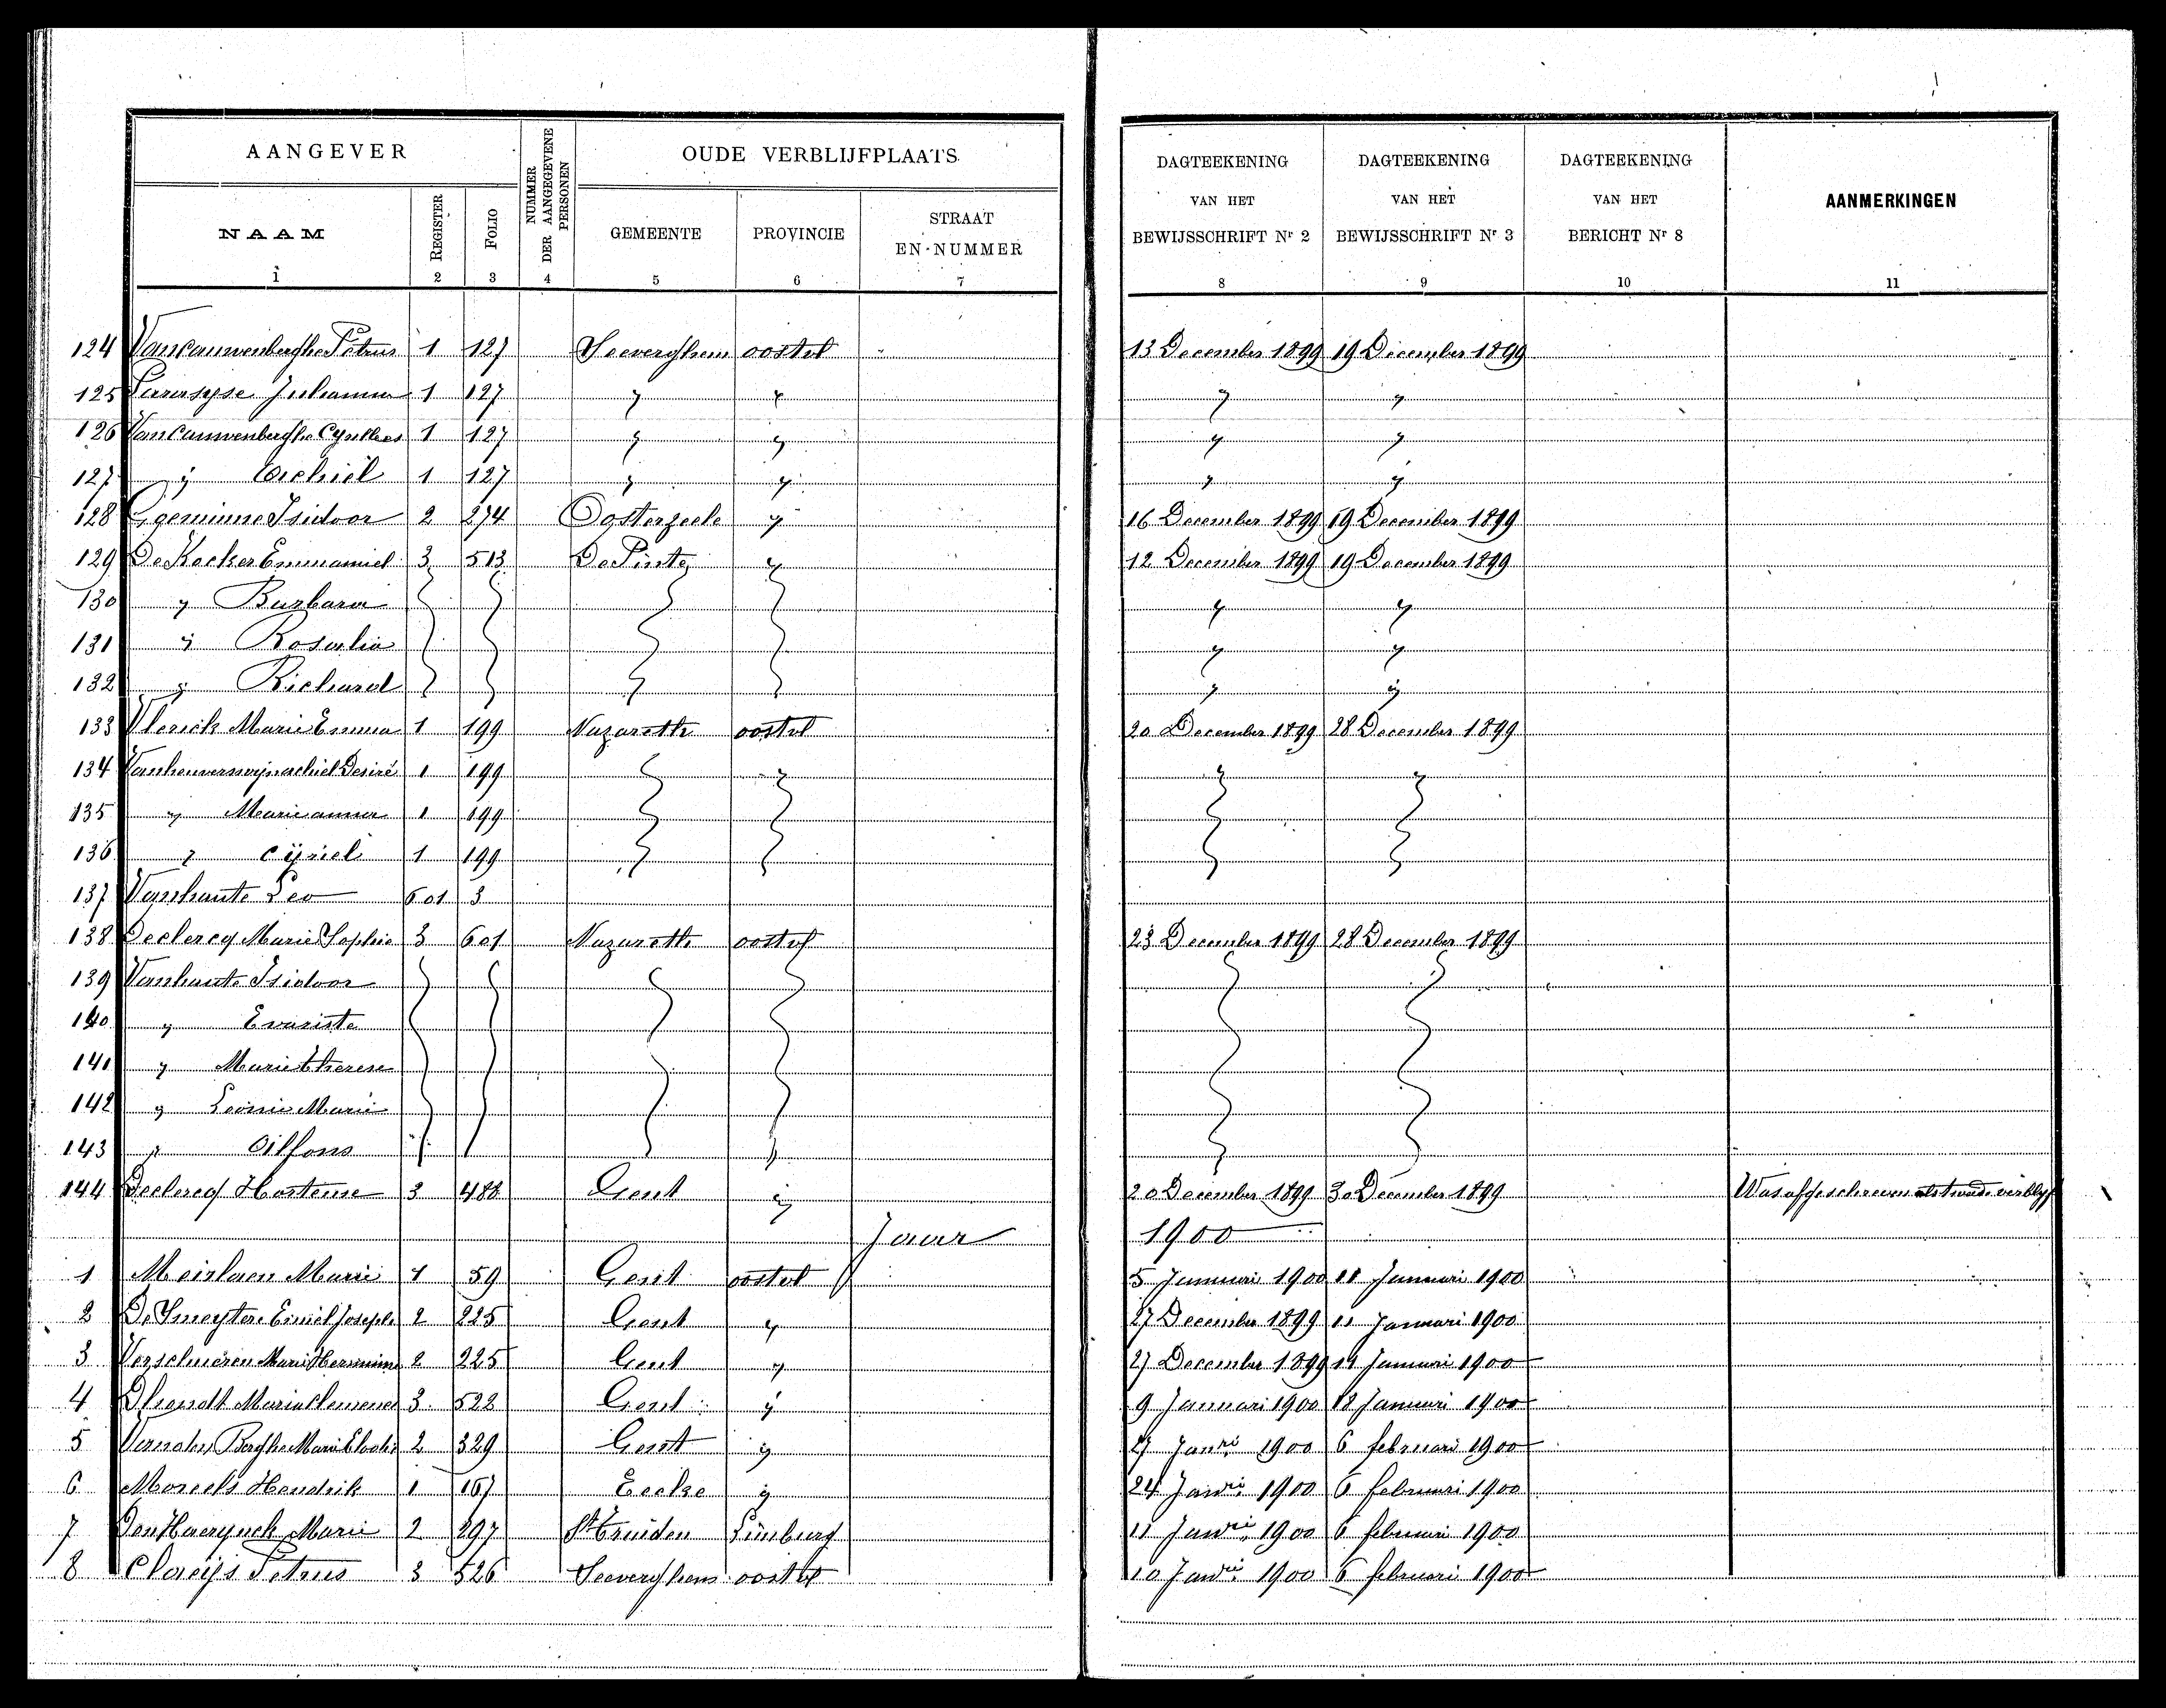 AANGEVER
NUMMER DER AANGEGEVENE PERSONEN
OUDE VERBLIJFPLAATS
NAAM REGISTER FOLIO GEMEENTE PROVINCIE STRAAT EN-NUMMER
DAGTEEKENING VAN HET BEWIJSSCHRIFT Nr 2
DAGTEEKENING VAN HET BEWIJSSCHRIFT Nr 3
DAGTEEKENING VAN HET BERICHT Nr 8
AANMERKINGEN
1 2 3 4 5 6 7 8 9 10 11
124 Vancauwenberghe Petrus 1 127 Seeverghem oostvl 13 December 1899 19 December 1899
125 Johanna 1 127 " " " "
126 Vancauwenberghe 1 127 " " " "
127 " Achiel 1 127 " " " "
128 Isidoor 2 274 Oosterzeele " 16 December 1899 19 December 1899
129 De Kocker Emmanuel 3 513 De Pinte " 12 December 1899 19 December 1899
130 " Barbara " "
131 " Rosalia " "
132 " Richard " "
133 Vlerick Marie Emma 1 199 Nazareth oostvl 20 December 1899 28 December 1899
134 Desiré 1 199 " " "
135 " Marie anna 1 199
136 " Cyriel 1 199
137 Vanhaute Leo 601 3
138 Declercq Marie Sophie 3 601 Nazareth oostvl 23 December 1899 28 December 1899
139 Vanhaute Isidoor
140 " Evariste
141 " Marie therese
142 " Leonie Marie
143 " Alfons
144 Declercq Hortense 3 488 Gent " 20 December 1899 30 December 1899 Was afgeschreven als tweede verblyf
Jaar 1900
1 Meirlaen Marie 1 59 Gent oostvl 5 Januari 1900 11 Januari 1900
2 De Smeyter Emiel Joseph 2 225 Gent " 27 December 1899 11 Januari 1900
3 Verschueren Marie 2 225 Gent " 27 December 1899 11 Januari 1900
4 Dhondt Marie Clemence 3 522 Gent " 9 Januari 1900 18 Januari 1900
5 Berghe Marie 2 329 Gent " Janri 1900 6 februari 1900
6 Morcels Hendrik 1 167 Eecke " 24 Janri 1900 6 februari 1900
7 Marie 2 297 St Truiden Limburg 11 Janri 1900 6 februari 1900
8 Claeijs Petrus 3 526 Seeverghem oostvl 10 Janri 1900 6 februari 1900